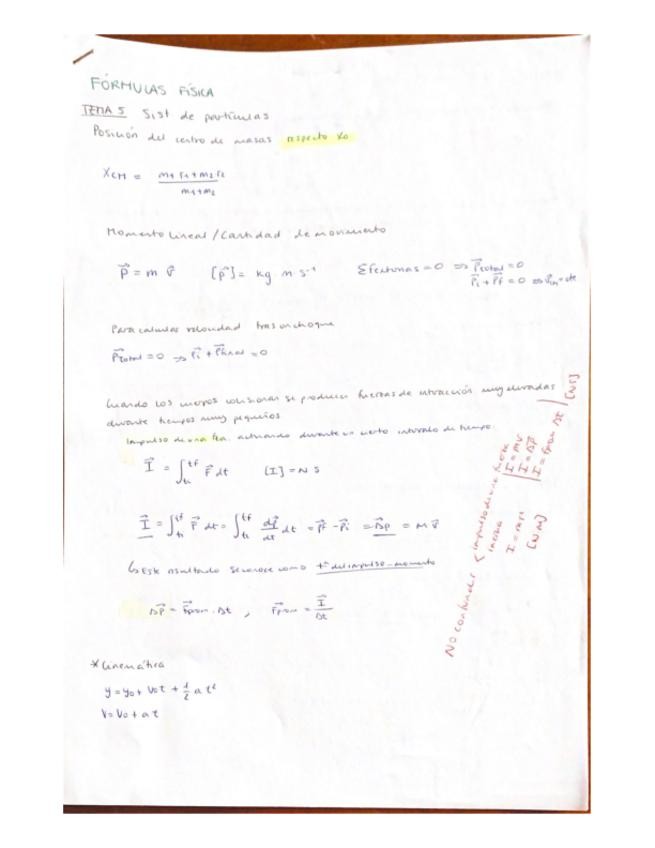 FÓRMULAS FÍSICA
TEMA 5 Sist de partículas
Posición del centro de masas respecto x₀
X_CM = (m₁ r₁ + m₂ r₂) / (m₁ + m₂)
Momento lineal / Cantidad de movimiento
p⃗ = m v⃗   [p⃗] = kg m s⁻¹   Σ Fexternas = 0 ⇒ p⃗total = 0
p⃗i + p⃗f = 0 ⇒ = cte
Para calcular velocidad tras un choque
p⃗total = 0 ⇒ p⃗i + p⃗final = 0
Cuando los cuerpos colisionan se producen fuerzas de interacción muy elevadas
durante tiempos muy pequeños
Impulso de una fza. actuando durante un cierto intervalo de tiempo.
I⃗ = ∫ti^tf F⃗ dt   [I] = N S
I⃗ = ∫ti^tf F⃗ dt = ∫ti^tf dp⃗/dt dt = p⃗f - p⃗i = Δp = m v⃗
↳ Este resultado se conoce como tª del impulso-momento
Δp⃗ = F⃗prom · Δt , F⃗prom = I⃗/Δt
* Cinemática
y = y₀ + v₀t + ½ a t²
V = V₀ + a t
No confundir { impulso de una fuerza
I = mv
I = Δp⃗
I = Fprom Δt [NS]
inercia
[N M]